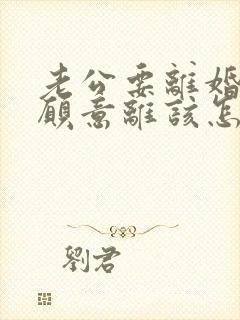 老公要離婚
願意離該怎
劉君